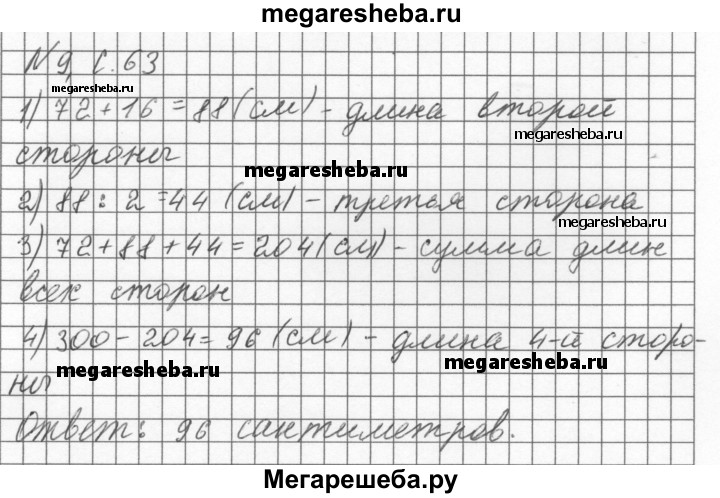 megaresheba.ru
N 9, с. 63
megaresheba.ru
1) 72 + 16 = 88 (см) - длина второй
megaresheba.ru
стороны
megaresheba.ru
2) 88 : 2 = 44 (см) - третья сторона
megaresheba.ru
3) 72 + 88 + 44 = 204 (см) - сумма длин
всех сторон
4) 300 - 204 = 96 (см) - длина 4-й сторо-
megaresheba.ru
ны megaresheba.ru
Ответ: 96 сантиметров.
Мегарешеба.ру